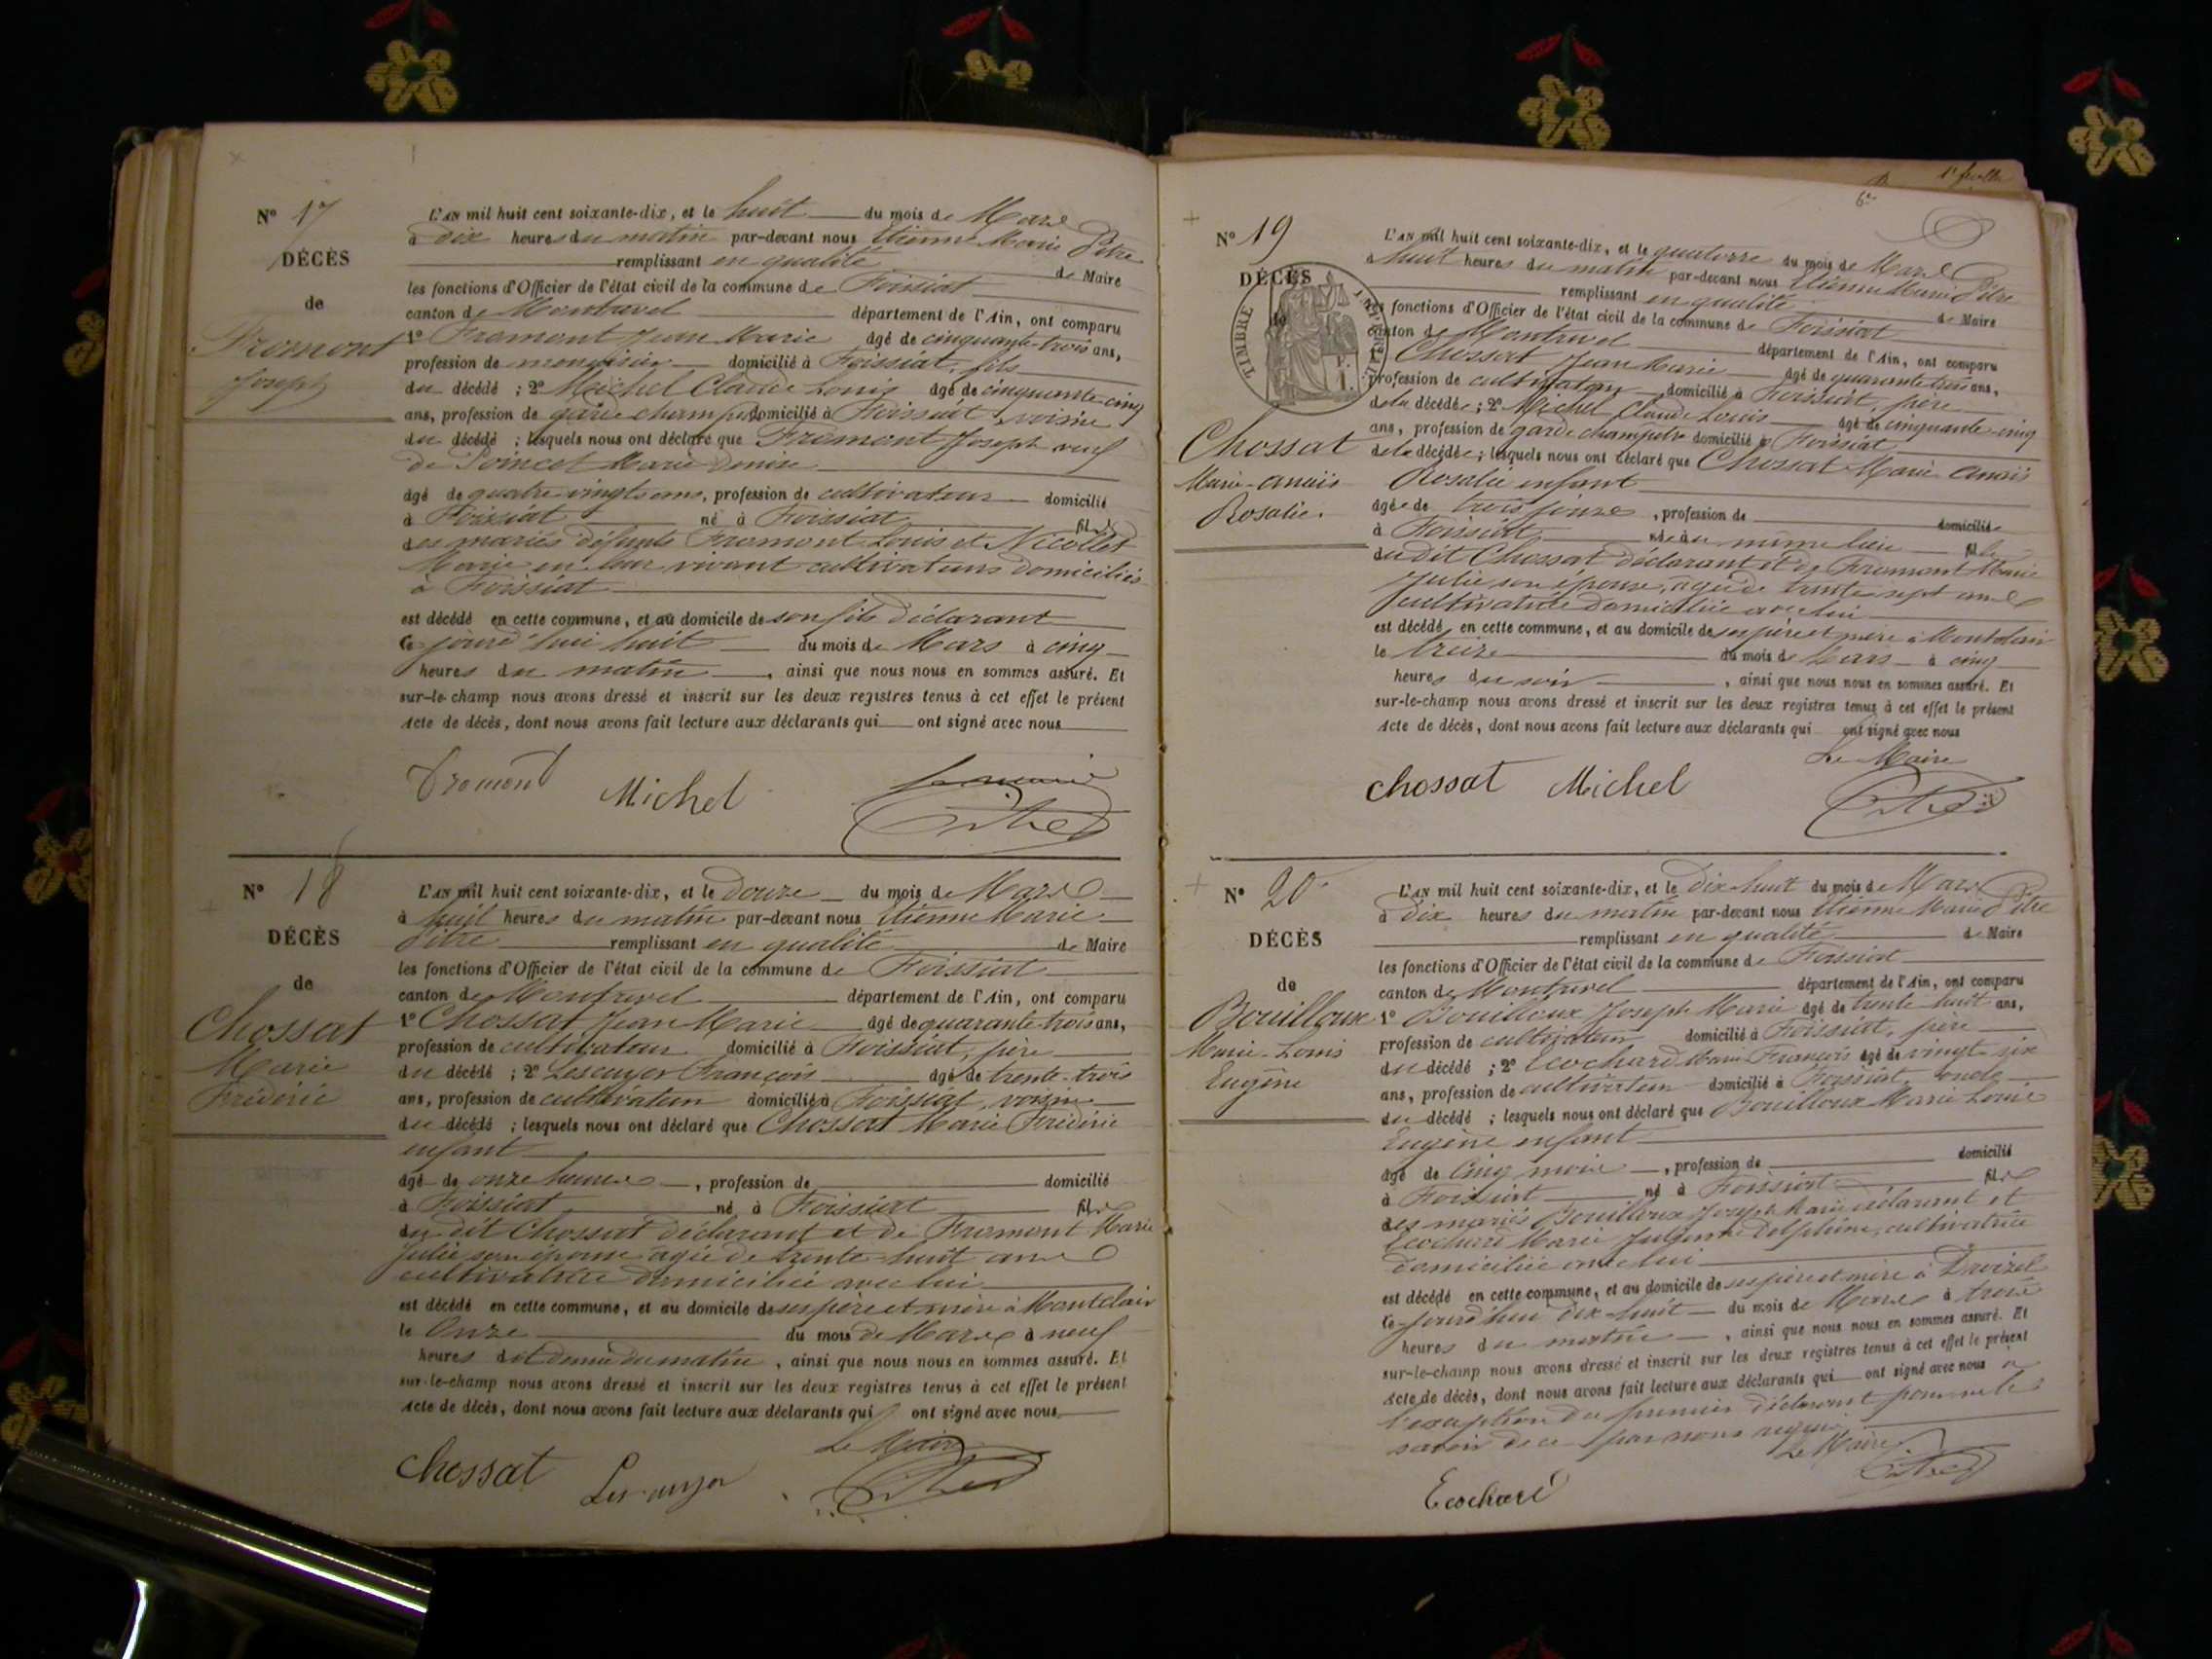 N° 17
DÉCÈS
de
Fromont
Joseph
L'AN mil huit cent soixante-dix, et le huit du mois de Mars
à dix heures du matin par-devant nous Etienne Marie Pitre
remplissant en qualité de Maire
les fonctions d'Officier de l'état civil de la commune de Foissiat
canton de Montrevel département de l'Ain, ont comparu
1° Fromont Jean Marie âgé de cinquante-trois ans,
profession de menuisier domicilié à Foissiat, fils
du décédé ; 2° Michel Claude Louis âgé de cinquante-cinq
ans, profession de garde champêtre domicilié à Foissiat, voisin
du décédé ; lesquels nous ont déclaré que Fromont Joseph veuf
de Poincet Marie Denise
âgé de quatre vingts ans, profession de cultivateur domicilié
à Foissiat né à Foissiat fils
des mariés défunts Fromont Louis et Nicollet
Marie en leur vivant cultivateurs domiciliés
à Foissiat
est décédé en cette commune, et au domicile de son fils déclarant
ce jourd'hui huit du mois de Mars à cinq
heures du matin, ainsi que nous nous en sommes assuré. Et
sur-le-champ nous avons dressé et inscrit sur les deux registres tenus à cet effet le présent
Acte de décès, dont nous avons fait lecture aux déclarants qui ont signé avec nous
Le maire
Fromont Michel Pitre
N° 18
DÉCÈS
de
Chossat
Marie
Frédéric
L'AN mil huit cent soixante-dix, et le douze du mois de Mars
à huit heures du matin par-devant nous Etienne Marie
Pitre remplissant en qualité de Maire
les fonctions d'Officier de l'état civil de la commune de Foissiat
canton de Montrevel département de l'Ain, ont comparu
1° Chossat Jean Marie âgé de quarante-trois ans,
profession de cultivateur domicilié à Foissiat, père
du décédé ; 2° Lescuyer François âgé de trente-trois
ans, profession de cultivateur domicilié à Foissiat, voisin
du décédé ; lesquels nous ont déclaré que Chossat Marie Frédéric
enfant
âgé de onze heures, profession de domicilié
à Foissiat né à Foissiat fils
du dit Chossat déclarant et de Fromont Marie
Julie son épouse agée de trente-huit ans
cultivatrice domiciliée avec lui
est décédé en cette commune, et au domicile de ses père et mère à Montclair
le Onze du mois de Mars à neuf
heures et demie du matin, ainsi que nous nous en sommes assuré. Et
sur-le-champ nous avons dressé et inscrit sur les deux registres tenus à cet effet le présent
Acte de décès, dont nous avons fait lecture aux déclarants qui ont signé avec nous
Le Maire
Chossat Lescuyer Pitre
1er feuille
6e
N° 19
DÉCÈS
de
TIMBRE IMPERIAL
Chossat
Marie-Anaïs
Rosalie
L'AN mil huit cent soixante-dix, et le quatorze du mois de Mars
à huit heures du matin par-devant nous Etienne Marie Pitre
remplissant en qualité de Maire
les fonctions d'Officier de l'état civil de la commune de Foissiat
canton de Montrevel département de l'Ain, ont comparu
1° Chossat Jean Marie âgé de quarante trois ans,
profession de cultivateur domicilié à Foissiat, père
de la décédée ; 2° Michel Claude Louis âgé de cinquante-cinq
ans, profession de garde champêtre domicilié à Foissiat
de la décédée ; lesquels nous ont déclaré que Chossat Marie Anaïs
Rosalie enfant
âgée de trois jours, profession de domiciliée
à Foissiat née au même lieu fille
du dit Chossat déclarant et de Fromont Marie
Julie son épouse, agée de trente sept ans
cultivatrice domiciliée avec lui
est décédé en cette commune, et au domicile de ses père et mère à Montclair
le treize du mois de Mars à cinq
heures du soir, ainsi que nous nous en sommes assuré. Et
sur-le-champ nous avons dressé et inscrit sur les deux registres tenus à cet effet le présent
Acte de décès, dont nous avons fait lecture aux déclarants qui ont signé avec nous
Le Maire
Chossat Michel Pitre
N° 20
DÉCÈS
de
Bouilloux
Marie-Louis
Eugène
L'AN mil huit cent soixante-dix, et le dix-huit du mois de Mars
à dix heures du matin par-devant nous Etienne Marie Pitre
remplissant en qualité de Maire
les fonctions d'Officier de l'état civil de la commune de Foissiat
canton de Montrevel département de l'Ain, ont comparu
1° Bouilloux Joseph Marie âgé de trente huit ans,
profession de cultivateur domicilié à Foissiat, père
du décédé ; 2° Ecochard Marie François âgé de vingt-six
ans, profession de cultivateur domicilié à Foissiat, oncle
du décédé ; lesquels nous ont déclaré que Bouilloux Marie Louis
Eugène enfant
âgé de cinq mois, profession de domicilié
à Foissiat né à Foissiat fils
des mariés Bouilloux Joseph Marie déclarant et
Ecochard Marie Delphine, cultivatrice
domiciliée avec lui
est décédé en cette commune, et au domicile de ses père et mère à
ce jourd'hui dix-huit du mois de Mars à trois
heures du matin, ainsi que nous nous en sommes assuré. Et
sur-le-champ nous avons dressé et inscrit sur les deux registres tenus à cet effet le présent
Acte de décès, dont nous avons fait lecture aux déclarants qui ont signé avec nous à
l'exception du premier déclarant pour ne le
savoir de ce par nous requis
Le Maire
Ecochard Pitre